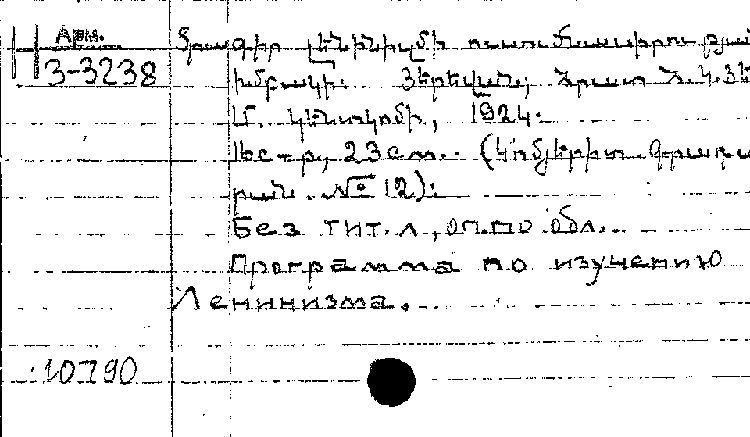 Арм.
3-3238
Ծրագիր լենինիզմի ուսումնասիրության
խմբակի. Յերեվան, Հրատ.
Մ. Կենտկոմի, 1924.
16стр, 23см. (Կոմյերիտ. Գրադա
րան № 12):
Без тит.л, оп.по обл.
Программа по изучению
Ленинизма.
10790